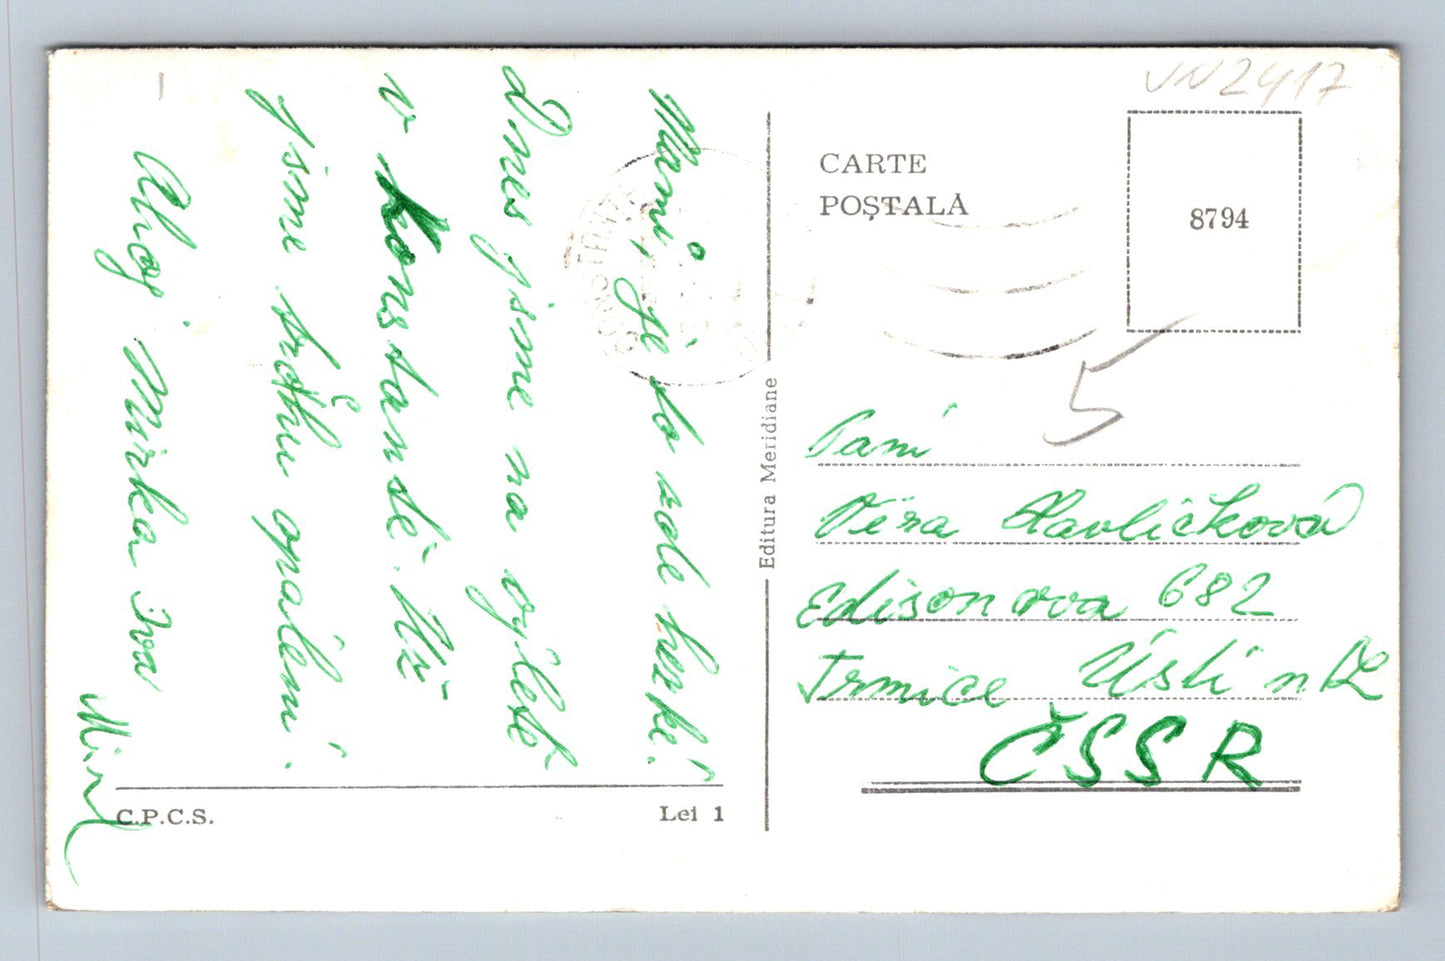 VN2417
CARTE
POȘTALĂ
8794
5
Mami, je to zde hezké!
Dnes jsme na výletě
v Konstantě. Už
jsme trochu opálení.
Ahoj Mirka Iva
Mirek
Editura Meridiane
Paní
Věra Havlíčková
Edisonova 682
Trmice Ústí n L
ČSSR
C.P.C.S.
Lei 1